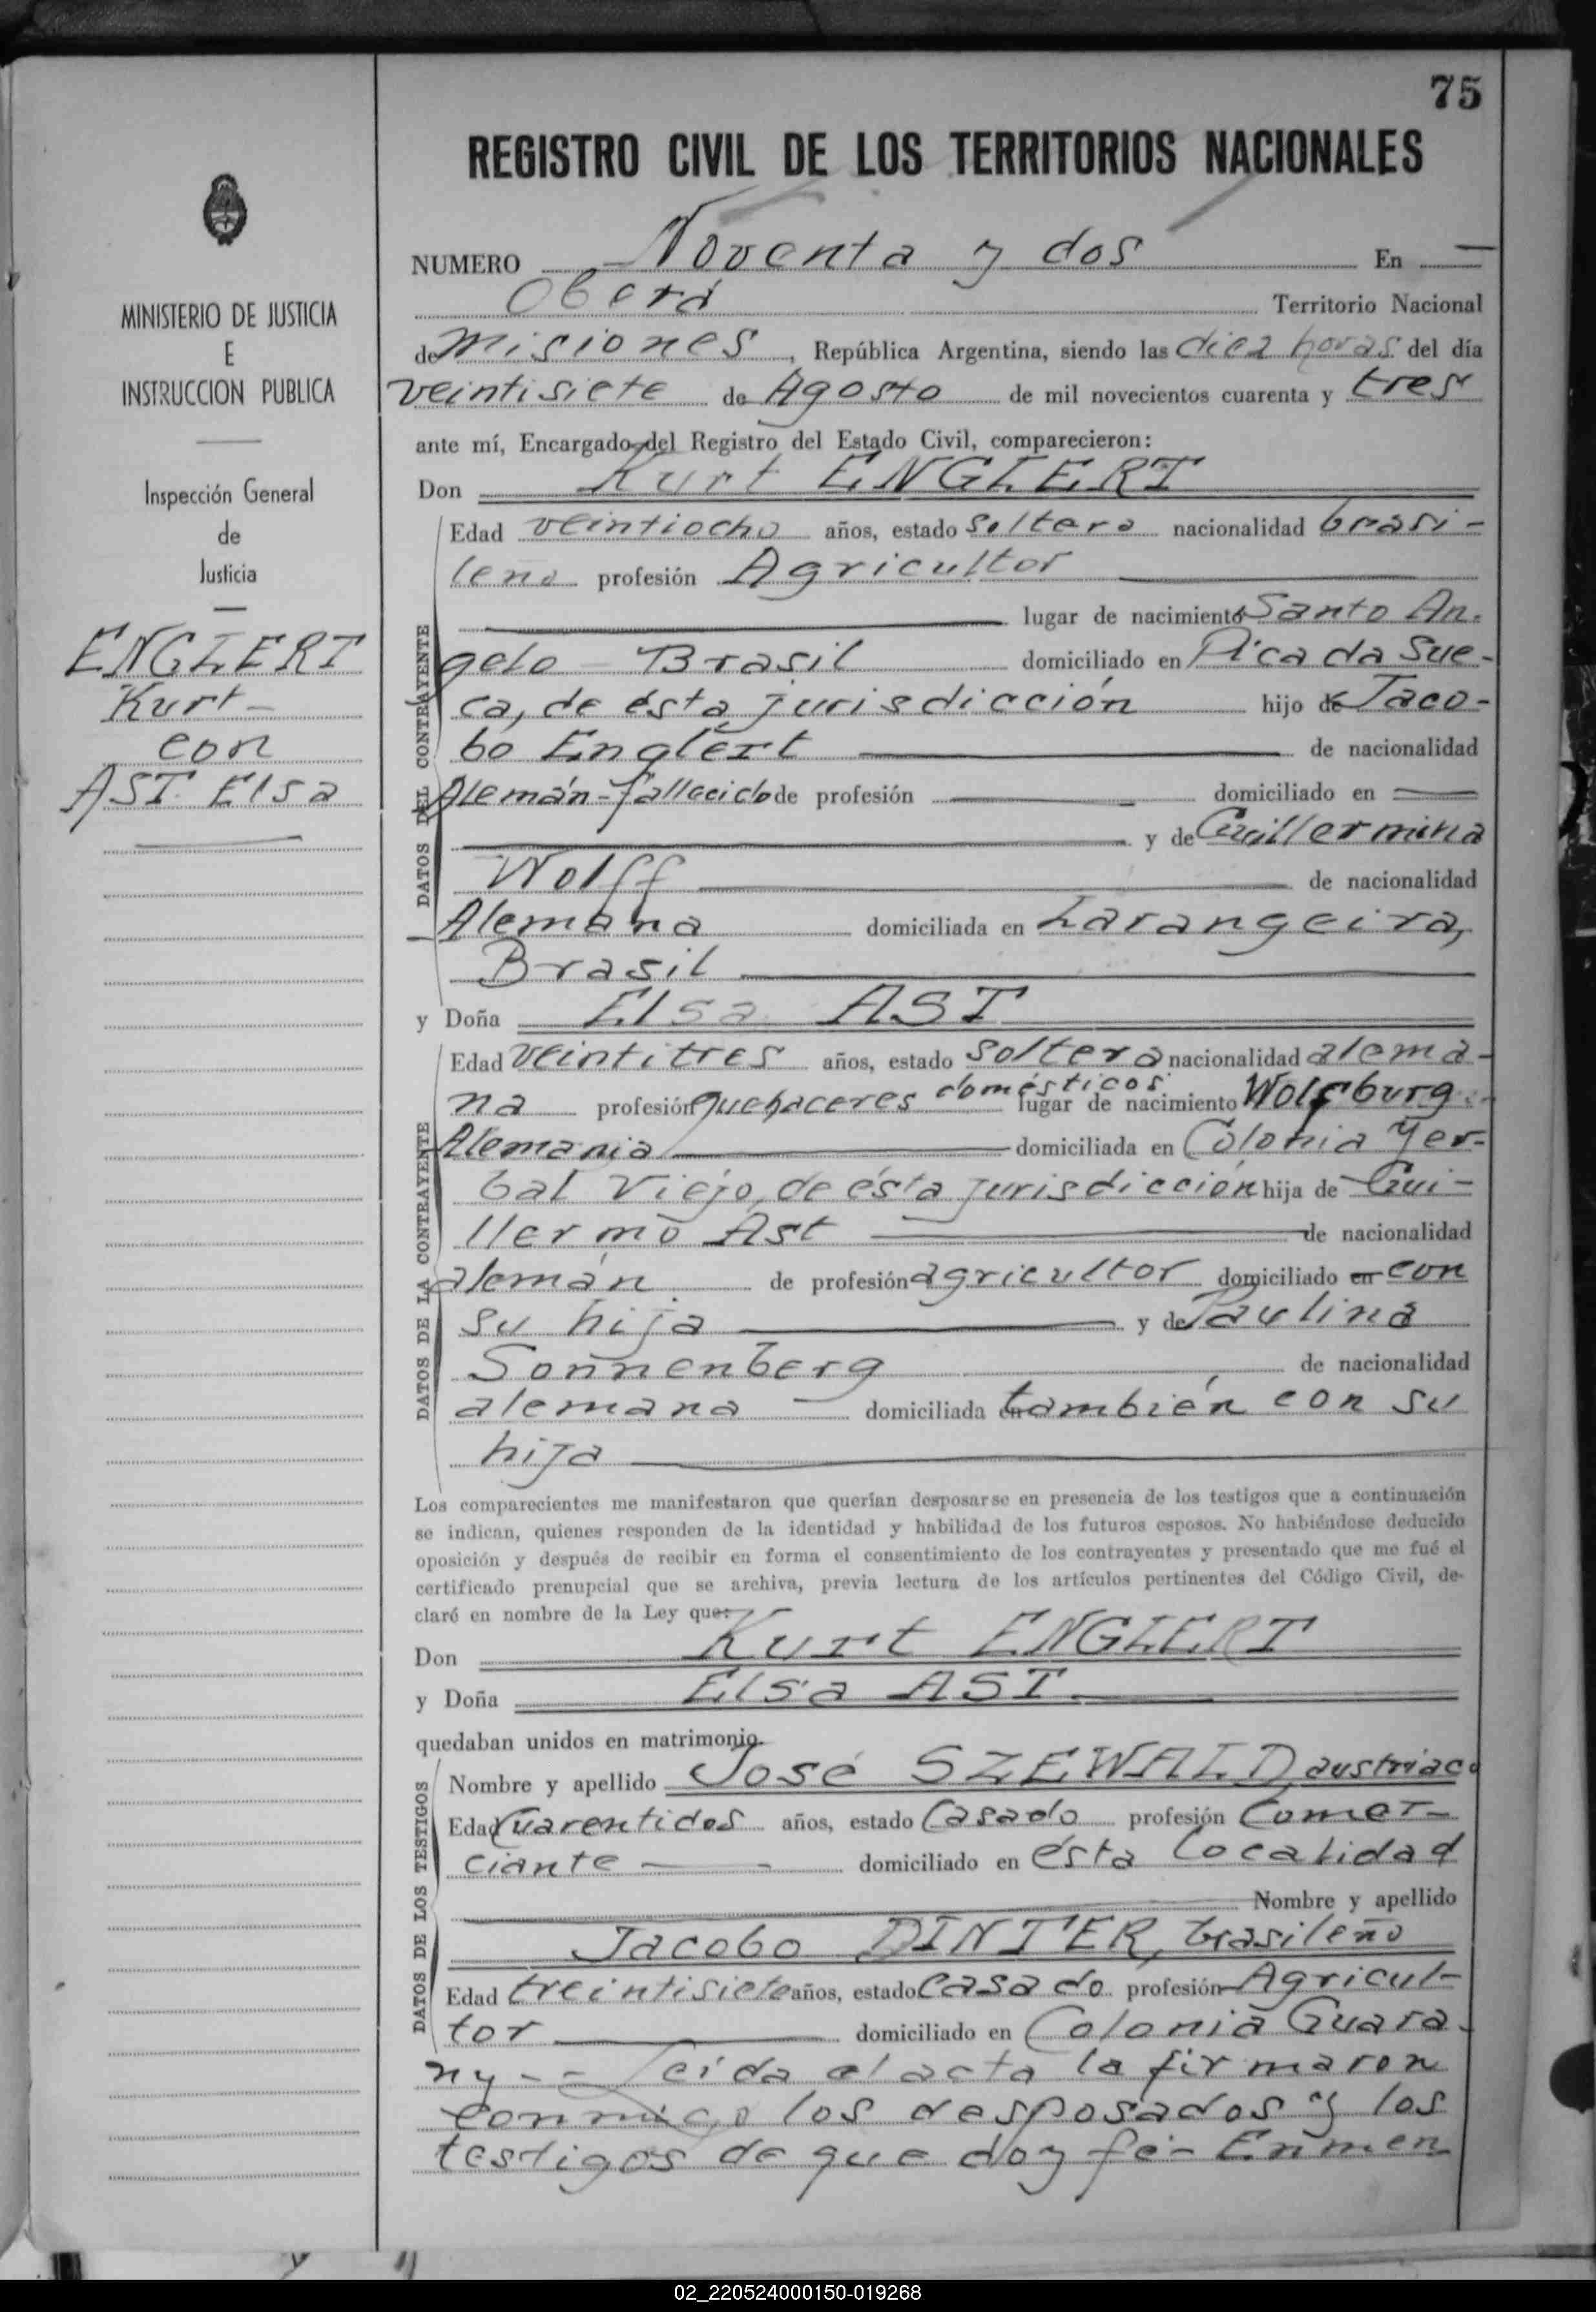 75
REGISTRO CIVIL DE LOS TERRITORIOS NACIONALES
MINISTERIO DE JUSTICIA
E
INSTRUCCION PUBLICA
Inspección General
de
Justicia
ENGLERT
Kurt -
con
AST Elsa
NUMERO Noventa y dos En
Oberá Territorio Nacional
de Misiones, República Argentina, siendo las diez horas del día
veintisiete de Agosto de mil novecientos cuarenta y tres
ante mí, Encargado del Registro del Estado Civil, comparecieron:
Don Kurt ENGLERT
DATOS DEL CONTRAYENTE
Edad veintiocho años, estado soltero nacionalidad brasi-
leño profesión Agricultor
lugar de nacimiento Santo An-
gelo - Brasil domiciliado en Picada Sue-
ca, de ésta jurisdicción hijo de Jaco-
bo Englert de nacionalidad
Alemán - fallecido de profesión domiciliado en
y de Guillermina
Wolff de nacionalidad
Alemana domiciliada en Larangeira,
Brasil
y Doña Elsa AST
DATOS DE LA CONTRAYENTE
Edad veintitres años, estado soltera nacionalidad alema-
na profesión quehaceres domésticos lugar de nacimiento Wolfburg -
Alemania domiciliada en Colonia Yer-
bal Viejo, de ésta jurisdicción hija de Gui-
llermo Ast de nacionalidad
alemán de profesión agricultor domiciliado en con
su hija y de Paulina
Sonnenberg de nacionalidad
alemana domiciliada en también con su
hija
Los comparecientes me manifestaron que querían desposarse en presencia de los testigos que a continuación
se indican, quienes responden de la identidad y habilidad de los futuros esposos. No habiéndose deducido
oposición y después de recibir en forma el consentimiento de los contrayentes y presentado que me fué el
certificado prenupcial que se archiva, previa lectura de los artículos pertinentes del Código Civil, de-
claré en nombre de la Ley que:
Don Kurt ENGLERT
y Doña Elsa AST
quedaban unidos en matrimonio.
DATOS DE LOS TESTIGOS
Nombre y apellido José SZEWALD, austriaco
Edad Cuarentidos años, estado Casado profesión Comer-
ciante domiciliado en ésta localidad
Nombre y apellido
Jacobo DINTER, brasileño
Edad treintisiete años, estado casado profesión Agricul-
tor domiciliado en Colonia Guara-
ny - - Leída el acta la firmaron
conmigo los desposados y los
testigos de que doy fé - Enmen
02_220524000150-019268